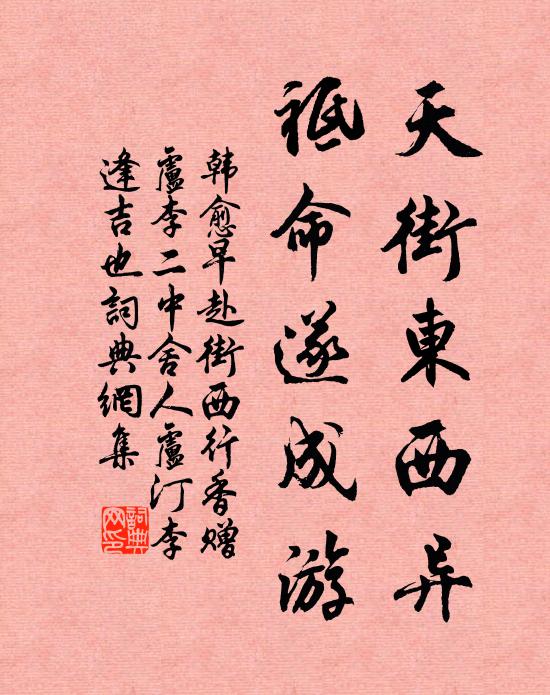 天街東西异
祗命遂成游
韩愈早赴街西行香赠
盧李二中舍人盧汀李
逢吉也詞典網集
詞典網印